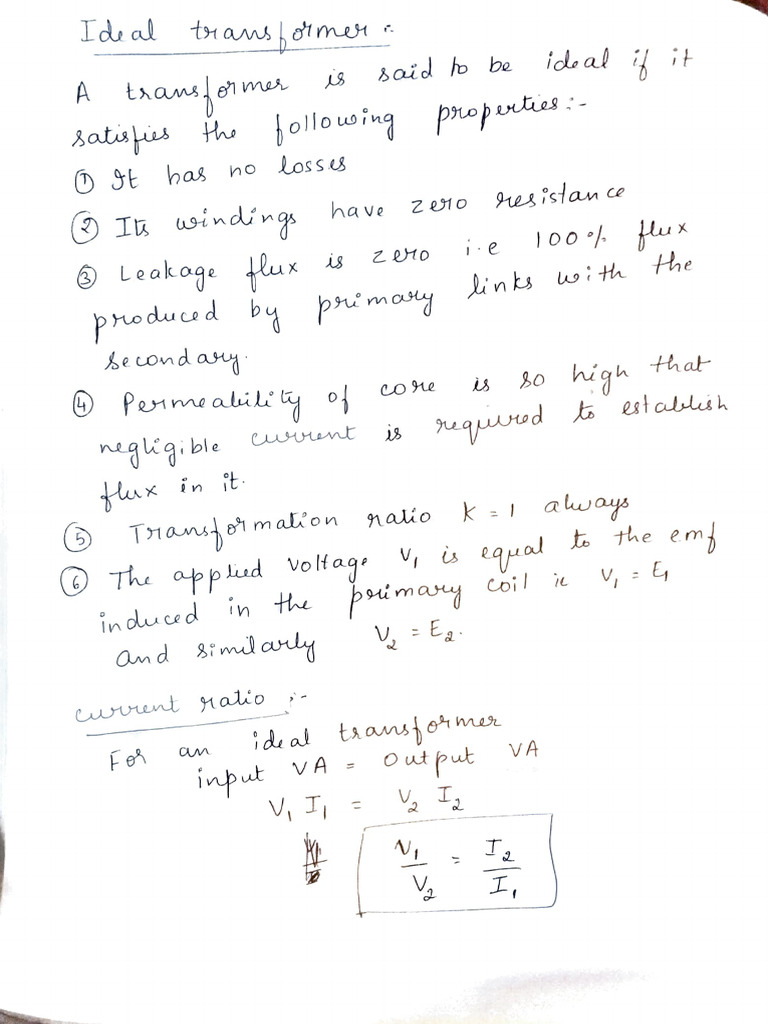 Ideal transformer :-
A transformer is said to be ideal if it
satisfies the following properties:-
① It has no losses
② Its windings have zero resistance
③ Leakage flux is zero i.e 100% flux
produced by primary links with the
secondary.
④ Permeability of core is so high that
negligible current is required to establish
flux in it.
⑤ Transformation ratio K = 1 always
⑥ The applied voltage V₁ is equal to the emf
induced in the primary coil ie V₁ = E₁
and similarly V₂ = E₂.
current ratio :-
For an ideal transformer
input VA = output VA
V₁ I₁ = V₂ I₂
V₁/V₂ = I₂/I₁